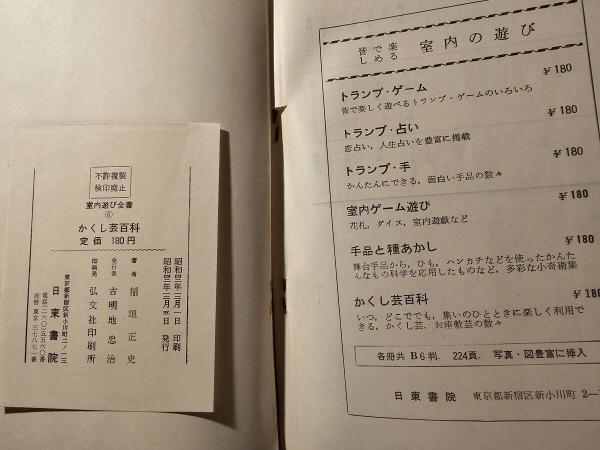 不許複製
検印廃止
室内遊び全書
⑥
かくし芸百科
定価 180円
昭和四三年三月一日 印刷
昭和四三年三月五日 発行
著者 稲垣正史
発行者 古明地忠治
印刷所 弘文社印刷所
東京都新宿区新小川町二ノ一三
日東書院
電話二六〇五五六〇番
振替東京三七八七一番
皆で楽しめる 室内の遊び
トランプ・ゲーム ¥180
皆で楽しく遊べるトランプ・ゲームのいろいろ
トランプ・占い ¥180
恋占い,人生占いを豊富に掲載
トランプ・手 ¥180
かんたんにできる,面白い手品の数々
室内ゲーム遊び ¥180
花札,ダイス,室内遊戯など
手品と種あかし ¥180
舞台手品から,ひも,ハンカチなどを使ったかんた
んなもの科学を応用したものなど,多彩な小奇術集
かくし芸百科 ¥180
いつ,どこでも,集いのひとときに楽しく利用で
きる,かくし芸,お座敷芸の数々
各冊共 B6判. 224頁. 写真・図豊富に挿入
日東書院 東京都新宿区新小川町 2—